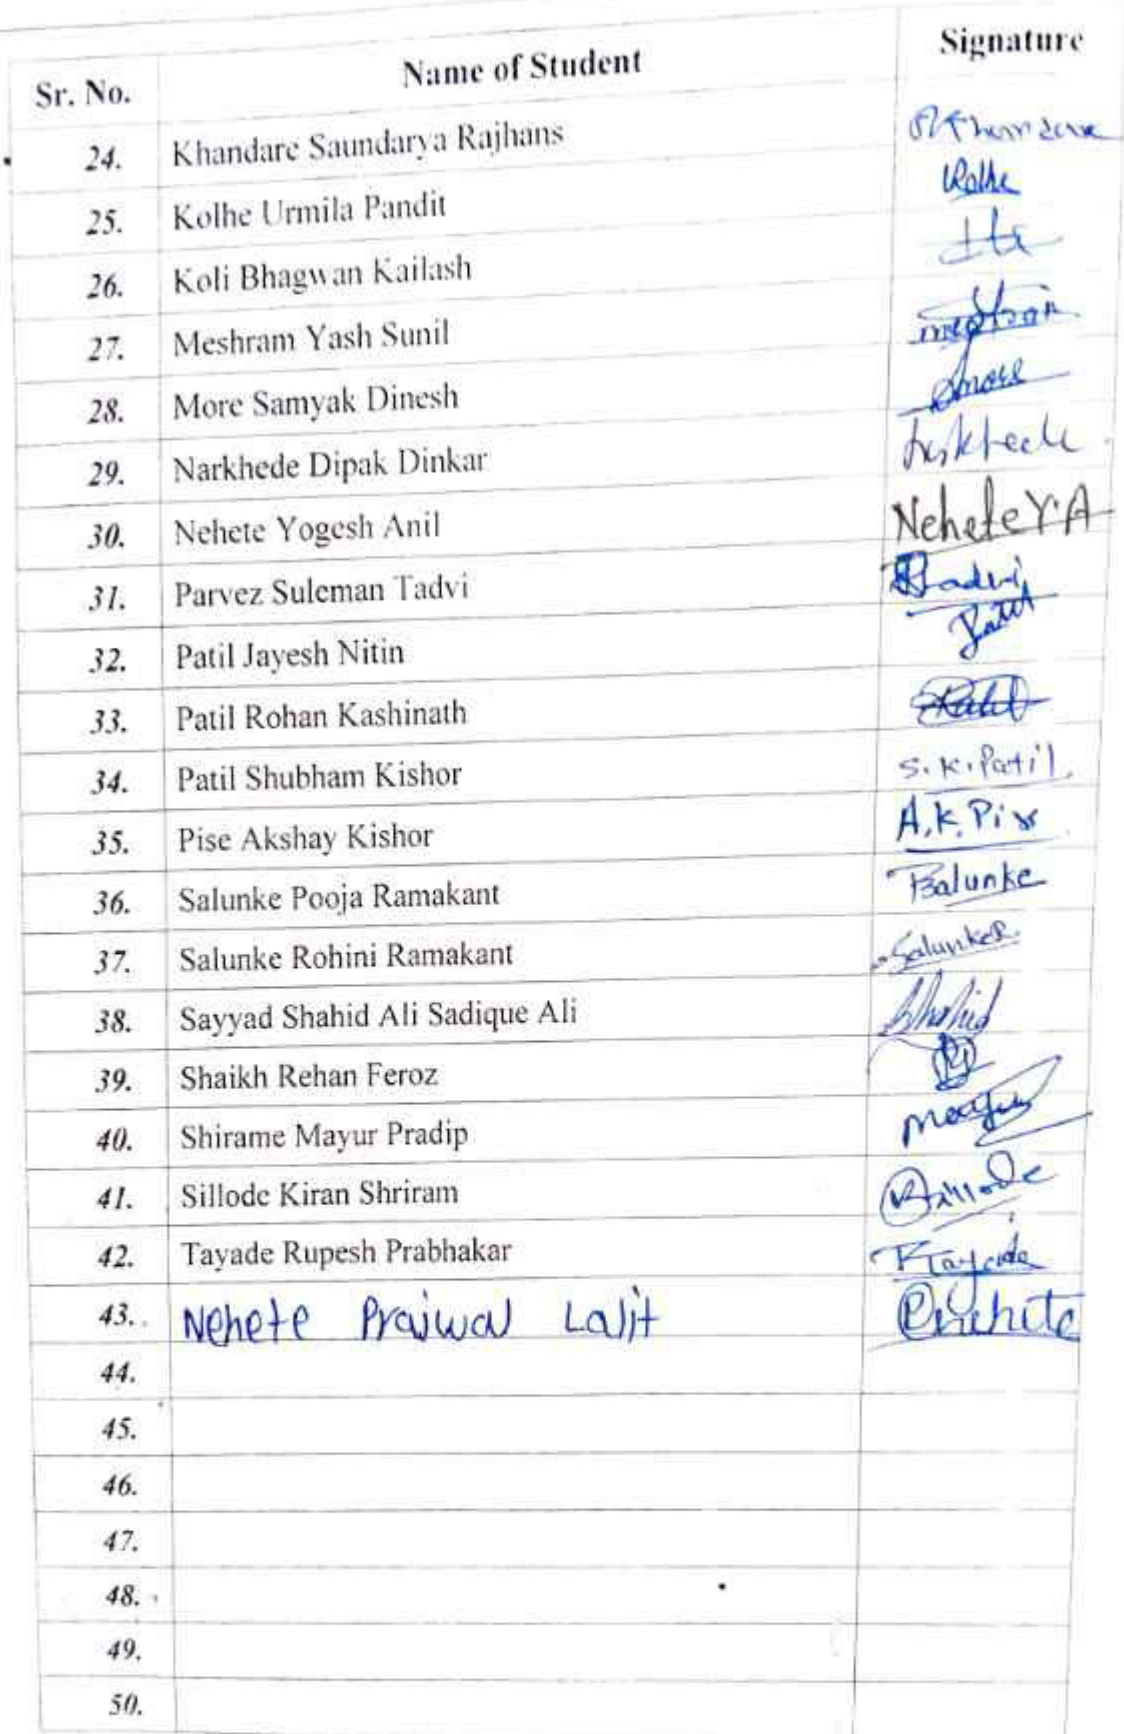 Sr. No. Name of Student Signature
24. Khandare Saundarya Rajhans
25. Kolhe Urmila Pandit Kolhe
26. Koli Bhagwan Kailash
27. Meshram Yash Sunil
28. More Samyak Dinesh Smore
29. Narkhede Dipak Dinkar
30. Nehete Yogesh Anil Nehete Y.A
31. Parvez Suleman Tadvi Tadvi
32. Patil Jayesh Nitin Patil
33. Patil Rohan Kashinath
34. Patil Shubham Kishor S.K.Patil
35. Pise Akshay Kishor A.K.Pise
36. Salunke Pooja Ramakant
37. Salunke Rohini Ramakant SalunkeR.
38. Sayyad Shahid Ali Sadique Ali Shahid
39. Shaikh Rehan Feroz
40. Shirame Mayur Pradip
41. Sillode Kiran Shriram
42. Tayade Rupesh Prabhakar RTayade
43. Nehete Prajwal Lalit
44.
45.
46.
47.
48.
49.
50.